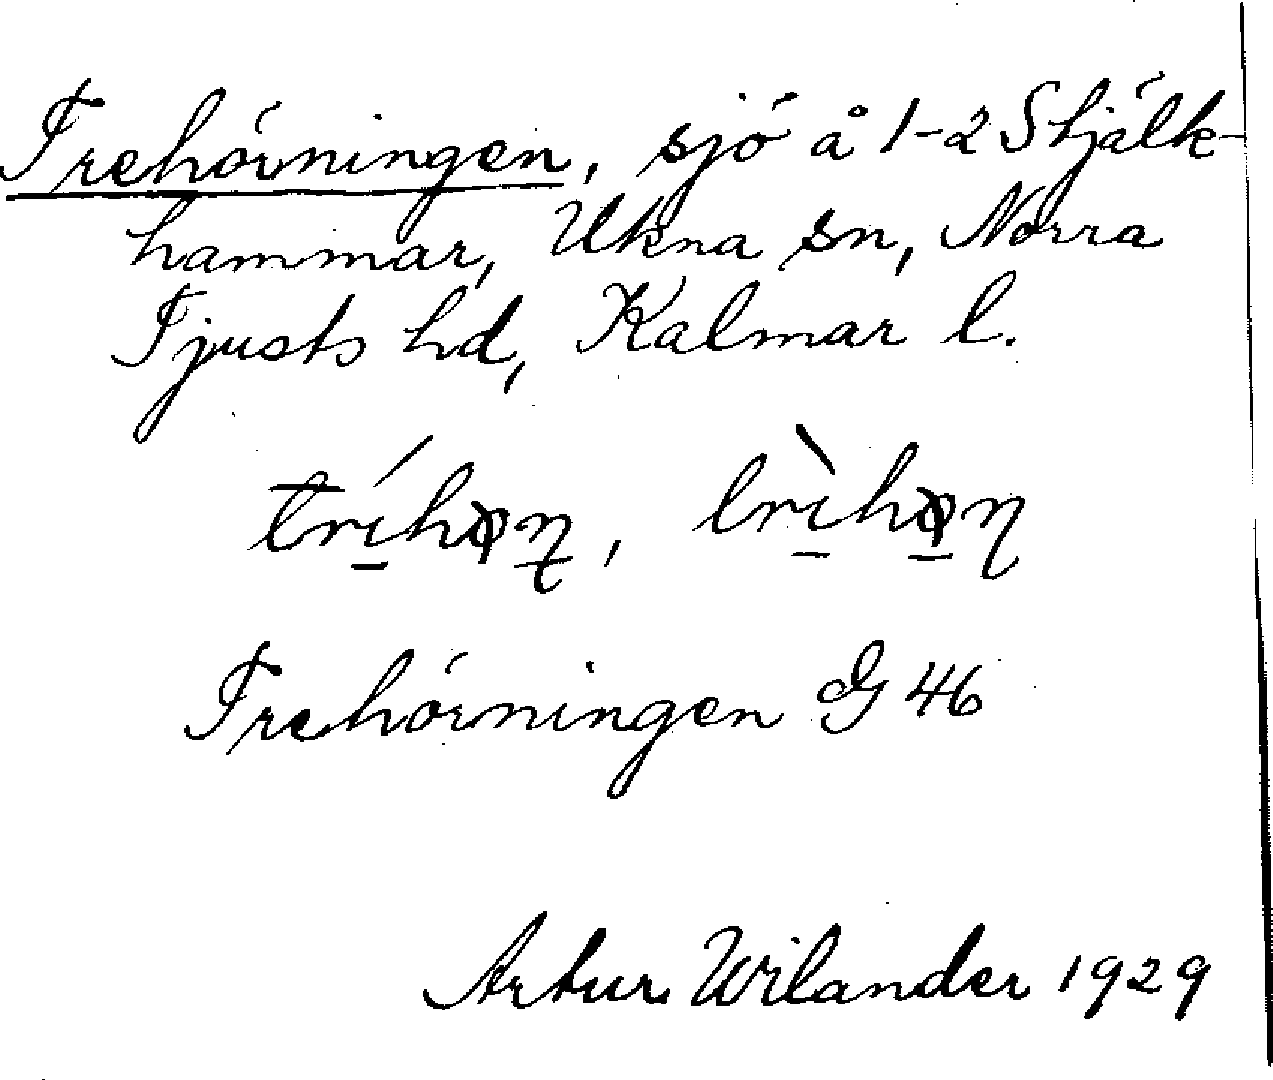 Trehörningen, sjö å 1-2 Skjälk-
hammar, Ukna sn, Norra
Tjusts hd, Kalmar l.
Trehörningen G 46
Artur Wilander 1929